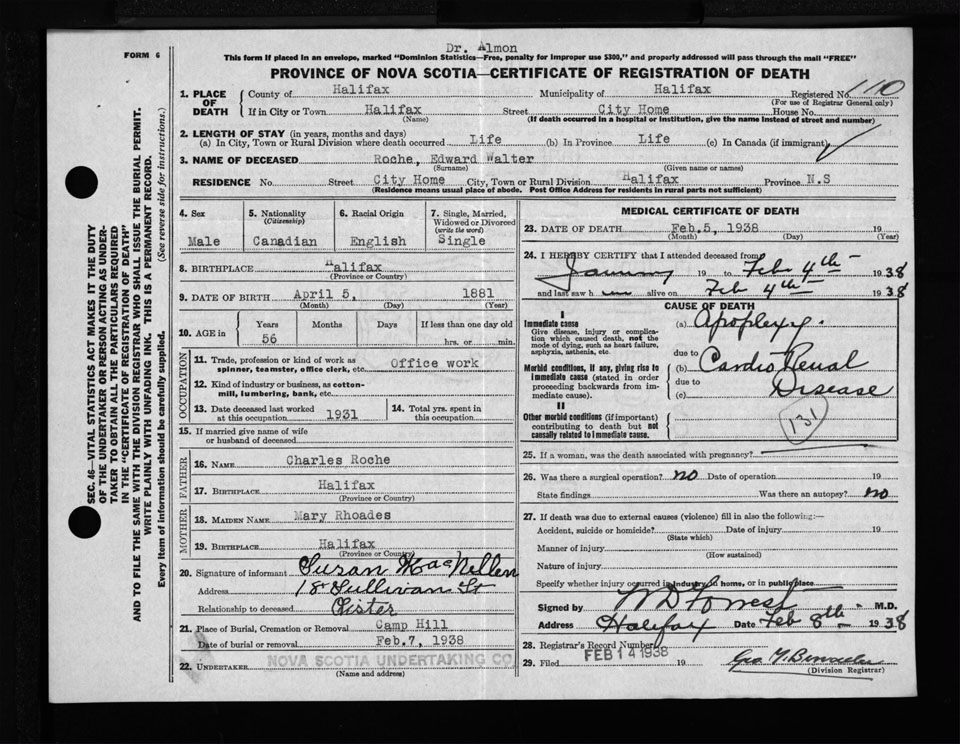 Dr. Almon
FORM 6
This form if placed in an envelope, marked "Dominion Statistics—Free, penalty for improper use $300," and properly addressed will pass through the mail "FREE"
PROVINCE OF NOVA SCOTIA—CERTIFICATE OF REGISTRATION OF DEATH
1. PLACE OF DEATH County of Halifax Municipality of Halifax Registered No. 110
(For use of Registrar General only)
If in City or Town Halifax Street City Home House No.
(Name) (If death occurred in a hospital or institution, give the name instead of street and number)
2. LENGTH OF STAY (in years, months and days)
(a) In City, Town or Rural Division where death occurred Life (b) In Province Life (c) In Canada (if immigrant)
3. NAME OF DECEASED Roche, Edward Walter
(Surname) (Given name or names)
RESIDENCE No. Street City Home City, Town or Rural Division Halifax Province N.S
(Residence means usual place of abode. Post Office Address for residents in rural parts not sufficient)
4. Sex Male
5. Nationality (Citizenship) Canadian
6. Racial Origin English
7. Single, Married, Widowed or Divorced (write the word) Single
8. BIRTHPLACE Halifax
(Province or Country)
9. DATE OF BIRTH April 5, 1881
(Month) (Day) (Year)
10. AGE in Years 56 Months Days If less than one day old hrs. or min.
OCCUPATION
11. Trade, profession or kind of work as spinner, teamster, office clerk, etc. Office work
12. Kind of industry or business, as cotton-mill, lumbering, bank, etc.
13. Date deceased last worked at this occupation 1931
14. Total yrs. spent in this occupation
15. If married give name of wife or husband of deceased
FATHER
16. NAME Charles Roche
17. BIRTHPLACE Halifax
(Province or Country)
MOTHER
18. MAIDEN NAME Mary Rhoades
19. BIRTHPLACE Halifax
(Province or Country)
20. Signature of informant Susan MacNellen
Address 18 Sullivan St
Relationship to deceased Sister
21. Place of Burial, Cremation or Removal Camp Hill
Date of burial or removal Feb.7, 1938
22. UNDERTAKER NOVA SCOTIA UNDERTAKING CO
(Name and address)
MEDICAL CERTIFICATE OF DEATH
23. DATE OF DEATH Feb.5, 1938 19
(Month) (Day) (Year)
24. I HEREBY CERTIFY that I attended deceased from
January 19 to Feb 4th 1938
and last saw h im alive on Feb 4th 1938
CAUSE OF DEATH
I
Immediate cause (a) Apoplexy.
Give disease, injury or complication which caused death, not the mode of dying, such as heart failure, asphyxia, asthenia, etc.
due to
Morbid conditions, if any, giving rise to immediate cause (stated in order proceeding backwards from immediate cause).
(b) Cardio Renal
due to
(c) Disease
131
II
Other morbid conditions (if important) contributing to death but not causally related to immediate cause.
25. If a woman, was the death associated with pregnancy?
26. Was there a surgical operation? no Date of operation 19
State findings Was there an autopsy? no
27. If death was due to external causes (violence) fill in also the following:—
Accident, suicide or homicide? Date of injury 19
(State which)
Manner of injury
(How sustained)
Nature of injury
Specify whether injury occurred in industry, home, or in public place
Signed by W D Forrest M.D.
Address Halifax Date Feb 8th 1938
28. Registrar's Record Number
FEB 14 1938
29. Filed 19
(Division Registrar)
SEC. 46—VITAL STATISTICS ACT MAKES IT THE DUTY
OF THE UNDERTAKER OR PERSON ACTING AS UNDER-
TAKER TO OBTAIN ALL THE PARTICULARS REQUIRED
IN THE "CERTIFICATE OF REGISTRATION OF DEATH"
AND TO FILE THE SAME WITH THE DIVISION REGISTRAR WHO SHALL ISSUE THE BURIAL PERMIT.
WRITE PLAINLY WITH UNFADING INK. THIS IS A PERMANENT RECORD.
Every item of information should be carefully supplied. (See reverse side for instructions.)